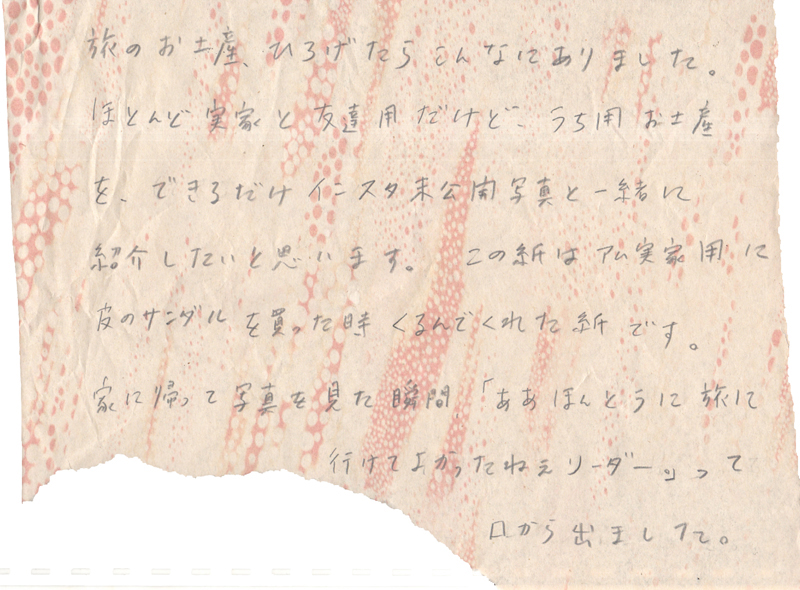 旅のお土産、ひろげたらこんなにありました。
ほとんど実家と友達用だけど、うち用お土産
を、できるだけインスタ未公開写真と一緒に
紹介したいと思います。 この紙はアム実家用に
皮のサンダルを買った時くるんでくれた紙です。
家に帰って写真を見た瞬間、「ああほんとうに旅に
行けてよかったねぇリーダー。」って
口から出ました。